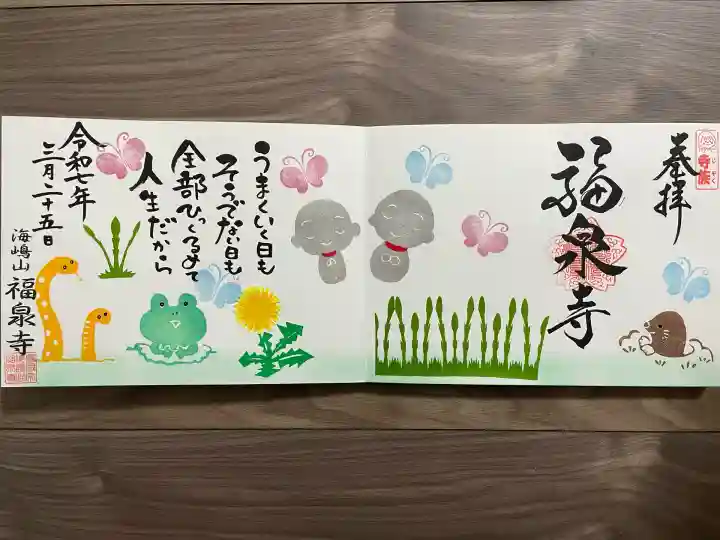 奉拝
福泉寺
うまくいく日も
そうでない日も
全部ひっくるめて
人生だから
令和七年
三月二十五日
海嶋山
福泉寺